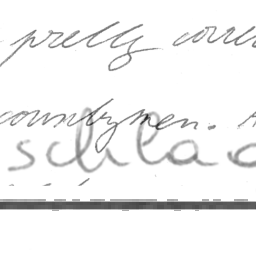 pretty corre
countrymen. A
schla